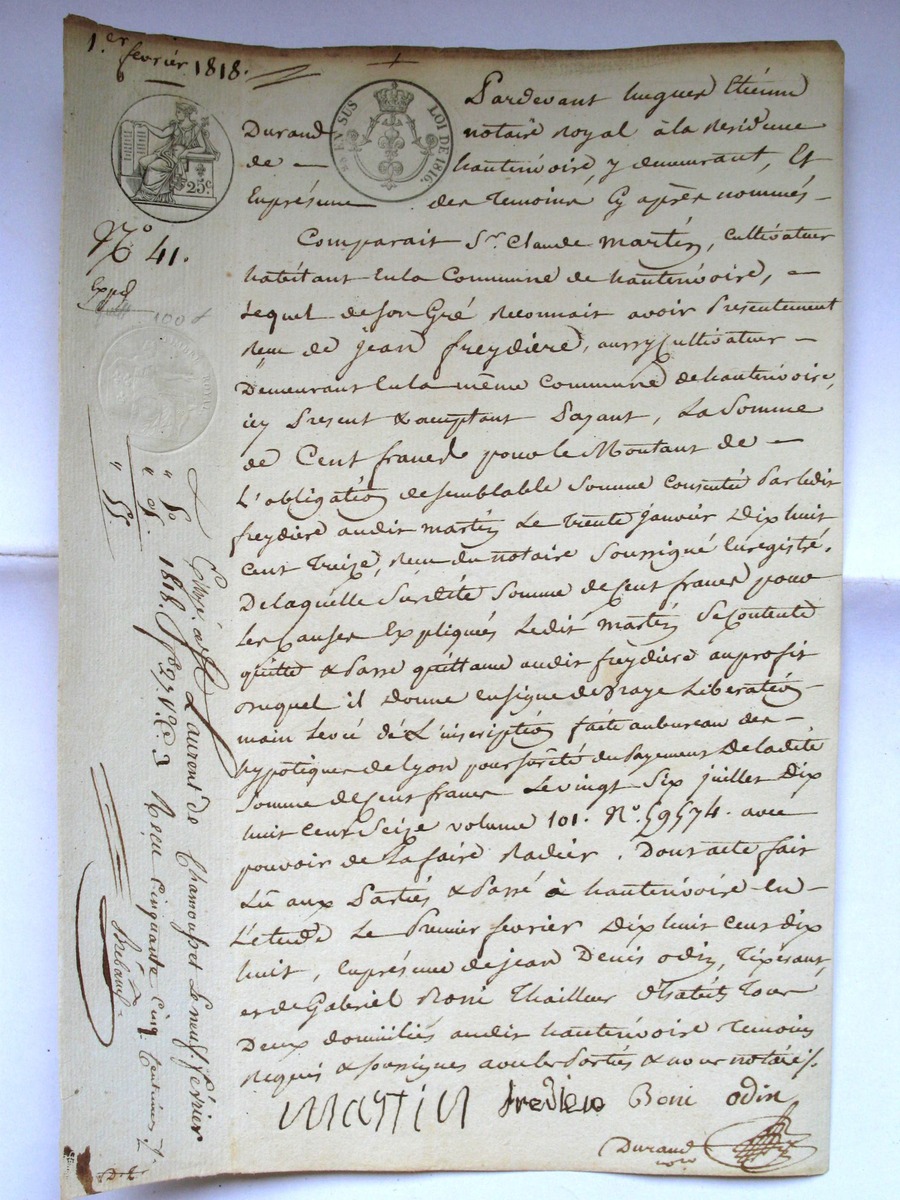 1.er fevrier 1818.
EN SUS LOI DE 1816.
25c.
Pardevant hugues Etiénne
Durand notaire Royal à la Residence
de hauterivoire, y demeurant, Et
En présence des Temoins Cy après nommés
N.o 41.
Expd
100 f
Comparait S.r Claude Martin, Cultivateur
habitant En la Commune de hauterivoire,
Lequel de son Gré Reconnait avoir Presentement
Reçu de jean freydiere, aussy Cultivateur
Demeurant En la même Commune de hauterivoire,
icy Present & acceptant Payant, La Somme
de Cent francs pour le Montant de
L'obligation de semblable Somme Consentie Par ledit
freydiere audit martin Le Trente janvier Dix huit
Cent Treize, Reçu du notaire Soussigné Enregistré.
De laquelle Susdite Somme de Cent francs pour
Les Causes Expliqués Ledit Martin Se Contente
quitte & Passe quittance audit freydiere au profit
duquel il donne en signe de Vraye Libération
main Levée de L'inscription faite au bureau des
hypotiques de Lyon pour sûreté du Payement De ladite
Somme de Cent francs Le vingt Six juillet Dix
huit Cent Seize volume 101. N.o 59574. avec
pouvoir de La faire Radier. Dont acte fait
Lû aux Parties & Passé à hauterivoire En
L'etude Le Premier fevrier Dix huit Cent dix
huit, En présence de jean Denis odin, Tixerant,
et de Gabriel Boni Thailleur d'habits Tous
Deux domiciliés audit hauterivoire Temoins
Requis & soussignés avec les Parties & nous notaire /.
Martin frediere Boni odin
Durand
nore
St Laurent de Chamousset Le neuf fevrier
1818. Reçu Cinquante Cinq Centimes
" 50
" 05.
" 55.